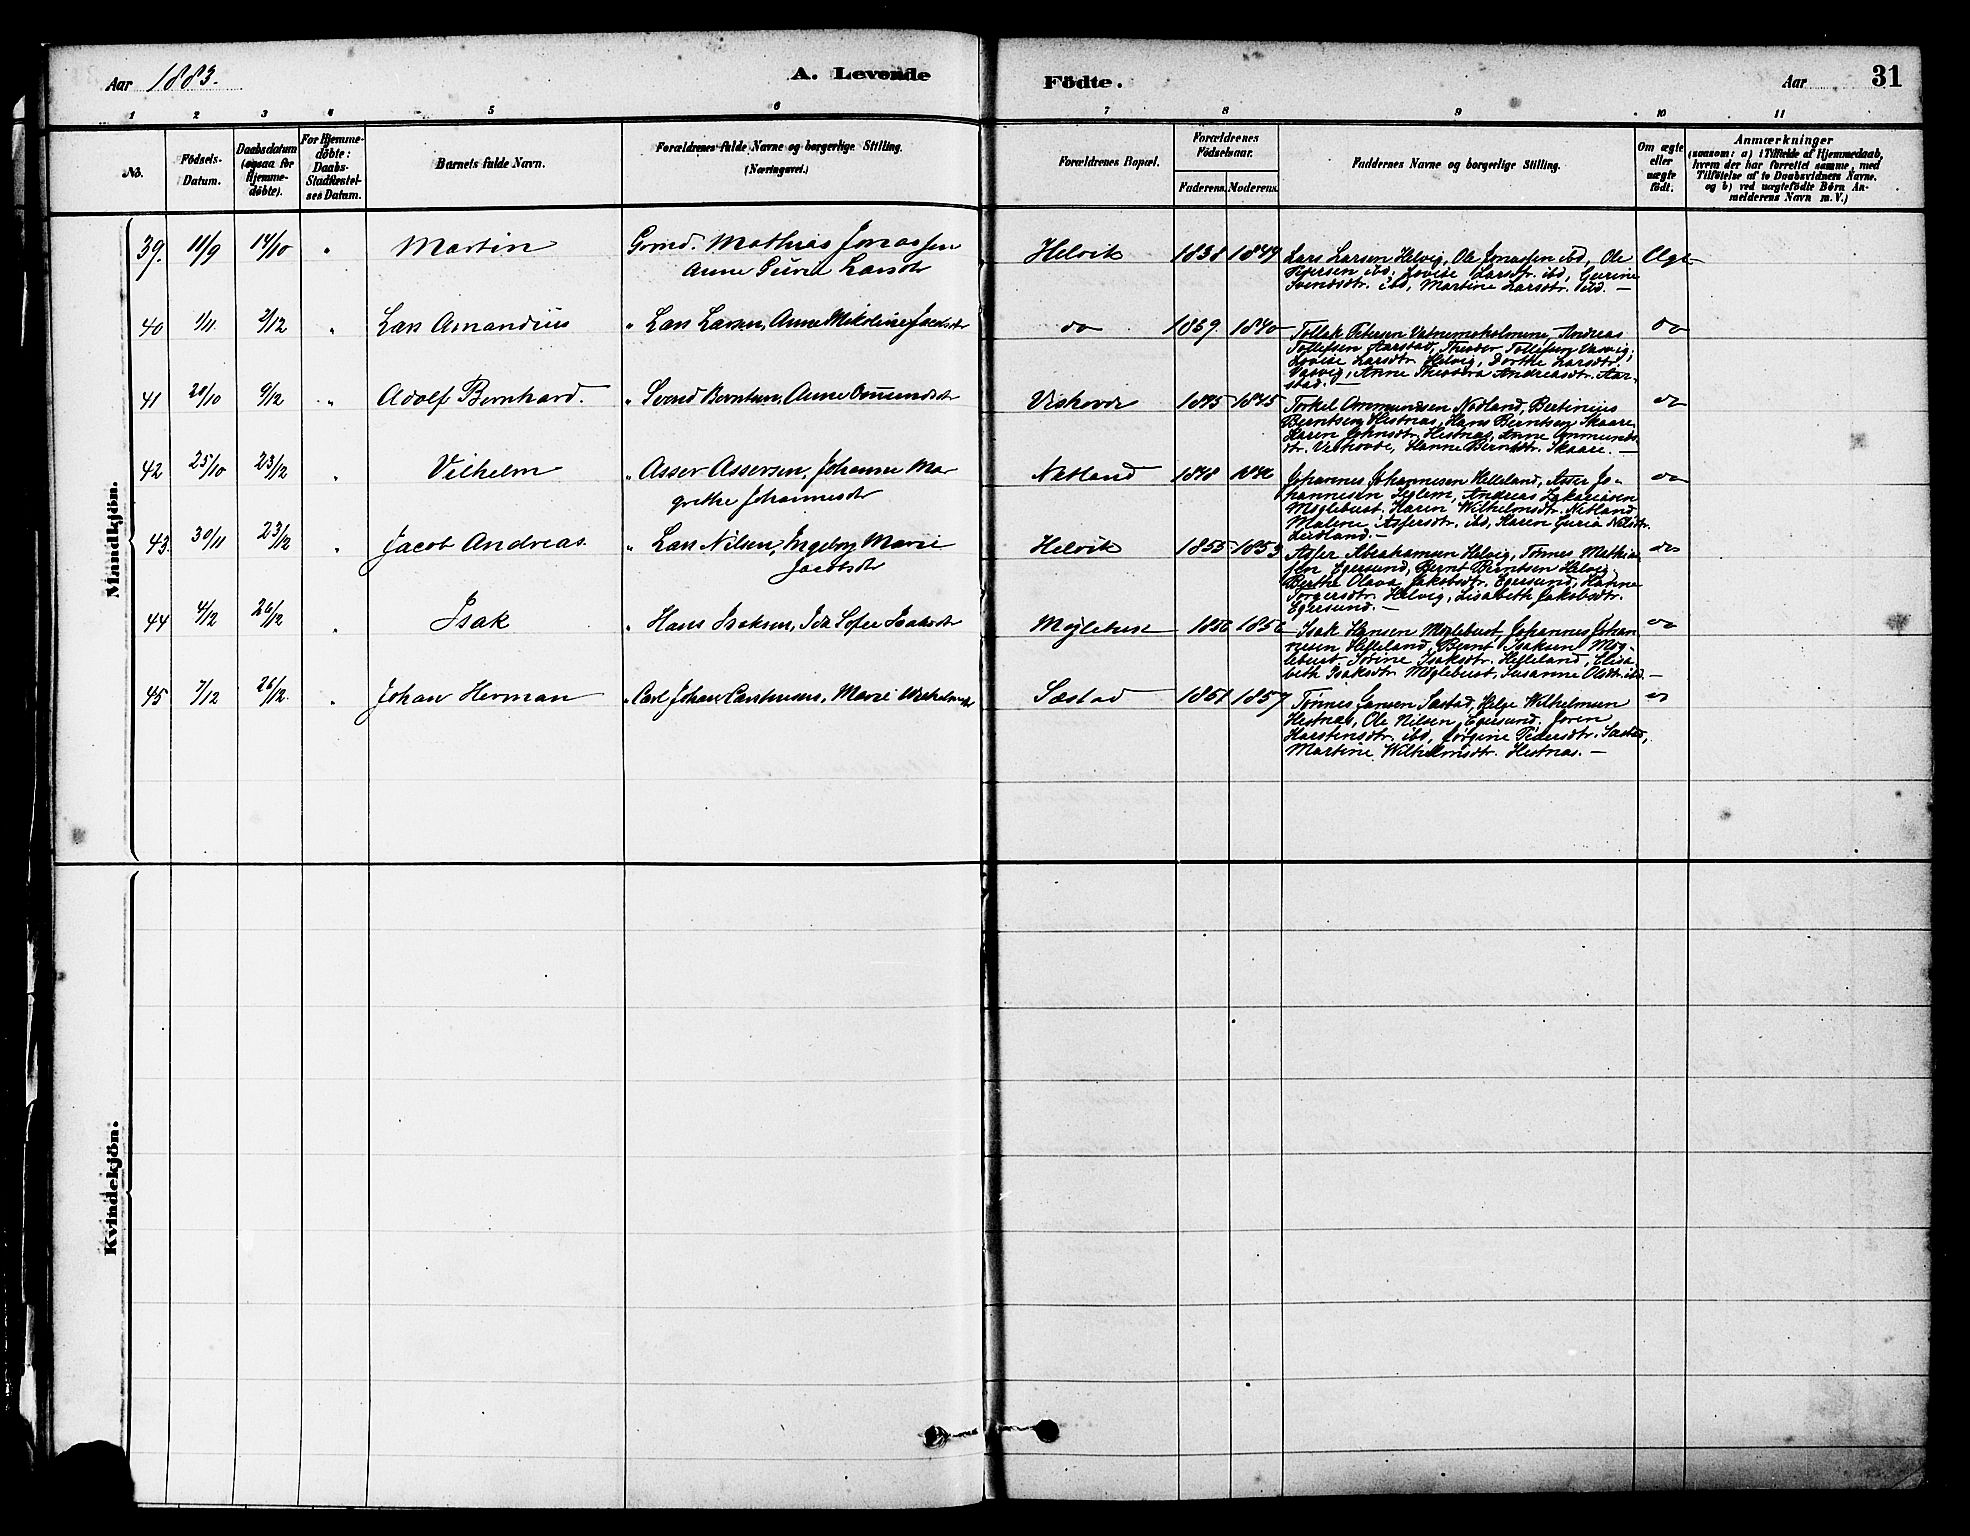 Aar 1883.
A. Levende
Födte.
Aar
31
1 2 3 4 5 6 7 8 9 10 11
No.
Födsels-Datum.
Daabsdatum (ogsaa for Hjemmedöbte).
For Hjemmedöbte: Daabs-Stadfæstelses Datum.
Barnets fulde Navn.
Forældrenes fulde Navne og borgerlige Stilling.
(Næringsvei.)
Forældrenes Bopæl.
Forældrenes Födselsaar.
Faderens. Moderens.
Faddernes Navne og borgerlige Stilling.
Om ægte eller uægte födt.
Anmærkninger
(saasom: a) i Tilfælde af Hjemmedaab, hvem der har forrettet samme, med Tilföielse af to Daabsvidners Navne, og b) ved uægtefödte Börn Anmelderens Navn m. V.)
Mandkjön.
39. 11/9 14/10 " Martin Grmd. Mathias Jonassen
Anne Larsdt
Helvik 1838 1844 Lars Larsen Helvig, Ole Jonassen ibd, Ole
Petersen ibd, Lovise Larsdtr. ibd, Gurine
Svendsdtr. ibd, Martine Larsdtr. ibd. —
Ægt
40 1/11 2/12 " Lars Amandius " Lars Larsen, Anne Mikoline Jacobsdt
do 1840 Tollak Petersen Vatnemoholmene, Andreas
Tollefsen Aarstad, Theodor Tollefsen Vasvig,
Lovise Larsdtr. Helvig, Dorthe Larsdtr.
Vasvig, Anne Theodora Andreasdtr. Aar-
stad. —
do
41 28/10 9/12 " Adolf Bernhard. " Svend Berntsen, Anne Omundsdt
1845 1845 Torkel Ommundsen Nodland, Bertinius
Berntsen Hestnæs, Hans Berntsen Skaare,
Karen Johnsdtr. Hestnæs, Anne Ommunds-
dtr. Veshovde, Hanne Berntsdtr. Skaare. —
do
42 25/10 23/12 " Vilhelm " Asser Assersen, Johanne Mar
grethe Johannesdt
Netland 1848 Johannes Johannesen Helleland, Asser Jo-
hannesen, Andreas Zakariasen
Möglebust, Karen Wilhelmsdtr. Netland
Malene Assersdtr. ibd, Karen Guria Nilsdtr.
do
43. 30/11 23/12 " Jacob Andreas. " Lars Nilsen, Ingeborg Marie
Jacobsdt
Helvik 1855 1853 Asser Abrahamsen Helvig, Tönnes Mathias-
sen Egersund, Bernt Berntsen Helvig
Berthe Olava Jakobsdtr. Egersund,
Torgersdtr. Helvig, Lisabeth Jakobsdtr.
Egersund. —
do
44 4/12 26/12 " Isak " Hans Isaksen, Ida Sofie Isaksdt
Möglebust 1856 1856 Isak Hansen Möglebust, Johannes Johan-
nesen Helleland, Bernt Isaksen Mög-
lebust, Sörine Isaksdtr. Helleland, Elisa-
beth Isaksdtr. Möglebust, Susanne Olsdtr. ibd. —
do
45 7/12 26/12 " Johan Herman " Carl Johan Carstensen, Marie Vilhelmsdt
Sæstad 1851 1857 Tönnes Jansen Sæstad, Helge Wilhelmsen
Hestnæs, Ole Nilsen Egersund, Joren
Karstensdtr. ibd, Jörgine Pedersdtr. Sæstad,
Martine Wilhelmsdtr. Hestnæs. —
do
Kvindekjön.